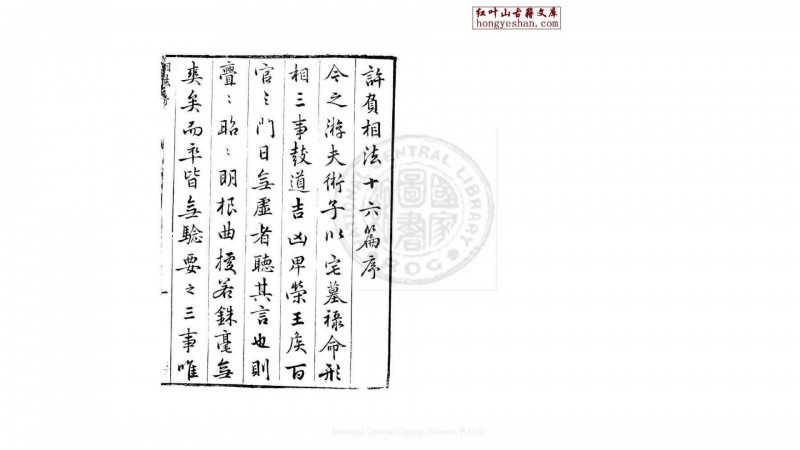 红叶山古籍文库
hongyeshan.com
許負相法十六篇序
今之游夫術子以宅墓祿命形
相三事鼓道吉凶卑榮王侯百
官之門日無虛者聽其言也則
亹〻昭〻明根曲援若銖毫無
爽矣而卒皆無驗要之三事唯
國家圖書
CENTRAL LIBRARY
ROC
National Central Library, Taiwan, R.O.C